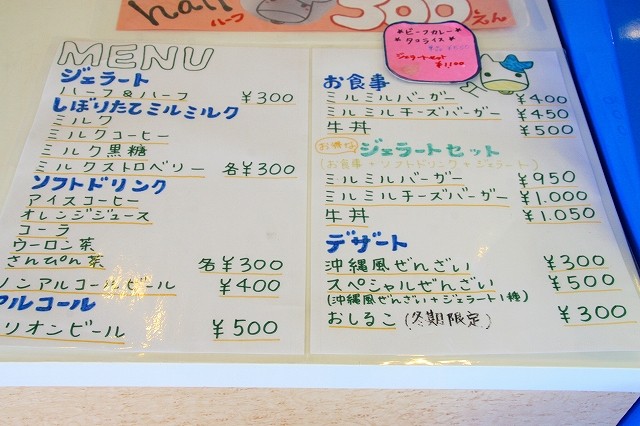 half
ハーフ
300えん
MENU
ジェラート
ハーフ&ハーフ ¥300
しぼりたてミルミルク
ミルク
ミルクコーヒー
ミルク黒糖
ミルクストロベリー 各¥300
ソフトドリンク
アイスコーヒー
オレンジジュース
コーラ
ウーロン茶
さんぴん茶 各¥300
ノンアルコールビール ¥400
アルコール
リオンビール ¥500
*ビーフカレー*
*タコライス*
ジェラートセット
¥1,100
お食事
ミルミルバーガー ¥400
ミルミルチーズバーガー ¥450
牛丼 ¥500
お得な ジェラートセット
(お食事+ソフトドリンク+ジェラート)
ミルミルバーガー ¥950
ミルミルチーズバーガー ¥1.000
牛丼 ¥1.050
デザート
沖縄風ぜんざい ¥300
スペシャルぜんざい ¥500
(沖縄風ぜんざい+ジェラート1種)
おしるこ (冬期限定) ¥300